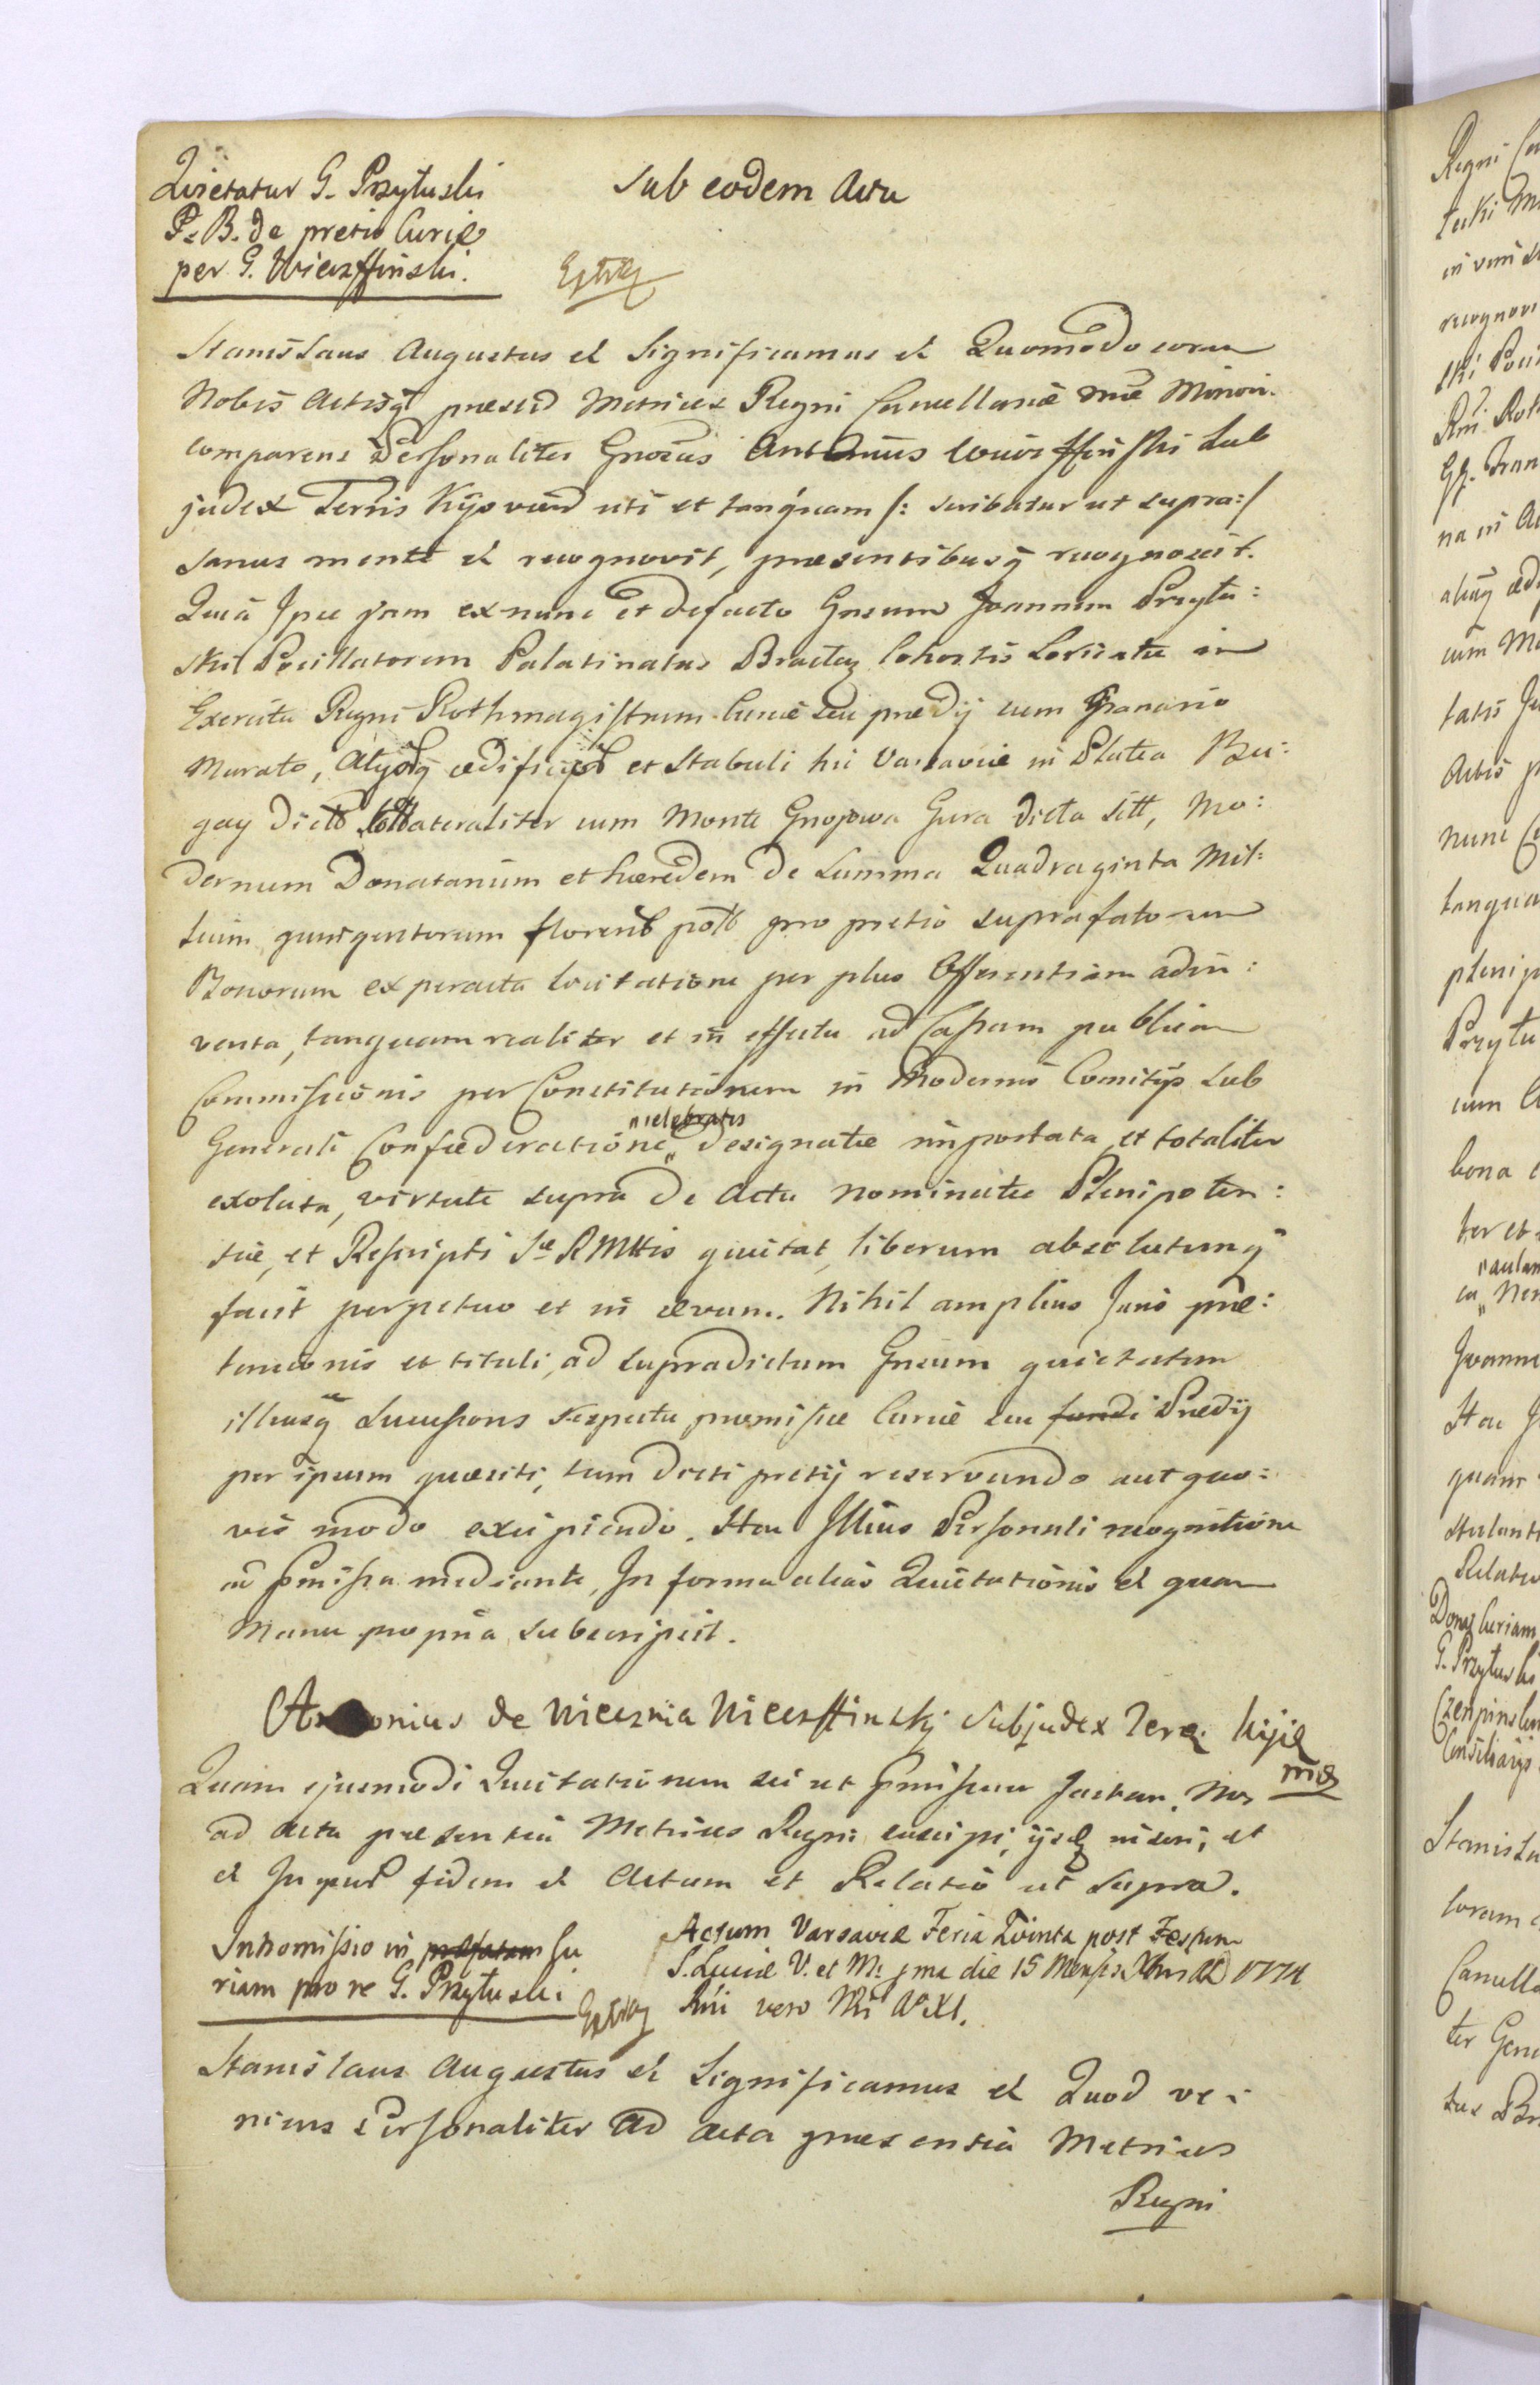 Quietatur G. Przyłuski
P. B. de pretio Curiæ
per G. Wierzffinski.
Sub eodem Actu
Extr
Stanislaus Augustus et Significamus et Quomodo coram
Nobis Actisq præsend Metrices Regni Cancellariæ nræ Minori.
comparens Personaliter Gnosus Antonius Wierzffinski Sub
judex Terris Kijoviens uti et tanquam /: scribatur ut supra :/
sanus mente et recognovit, præsentibusq recognoscit.
Quia Ipse jam ex nunc et defacto Gnsum Joannem Przyłu:
ski Pocillatorem Palatinatus Bractas Cohortis Loricatæ in
Exercitu Regni Rothmagistrum Curiæ seu prædij cum Granario
Murato, Alysq ædificijs et Stabuli hic Varsaviæ in Platea Bu:
gay dicto Collateraliter cum Monte Gnojowa Gura dicta sitt, Mo:
dernum Donatarium et hæredem de Summa Quadraginta Mil:
lium quingentorum florens polł pro pretio suprafatorum
Bonorum ex peracta licitatione per plus Offerentiam adin:
venta, tanquam realiter et in effectu ad Cassam publicam
Commissionis per Constitutionem in Modernis Comitijs sub
Generali Confæderatione "celebratis designatæ importata, et totaliter
exoluta, virtute supra de Actu nominatæ Plenipoten:
tiæ, et Rescripti Sæ RMttis quietat, liberum absolutumq
facit perpetuo et in ævum. Nihil amplius Juris præ:
tensionis et tituli, ad supradictum Gnsum quietatum
illiusq Successores respectu præmissæ Curiæ seu fundi Prædij
per ipsum quæsiti, tum dicti pretij reservando aut quo:
vis modo excipiendo. Hac Illius Personali recognitione
ad pmissa mediante, In forma alias Quietationis et quam
Manu propria subscripsit.
Antonius de Wierznia Wierzffinsky Subjudex Terræ Kijiæ
mp
Quam ejusmodi Quietationem sic ut pmissum factam, Nos
ad Acta præsentia Metrices Regni suscipi, ijsq inseri, et
et In quor fidem et Actum et Relatio ut Supra.
Intromissio in præfatam Cu
riam pro re G. Przyłuski
Extr
Actum Varsaviæ Feria Quinta post Festum
S. Luciæ V. et M: ipsa die 15 Mensis Xbris AD 1774
Rni vero Nri Ao XI.
Stanislaus Augustus et Significamus et Quod ve:
niens Personaliter ad Acta præsentia Metrices
Regni